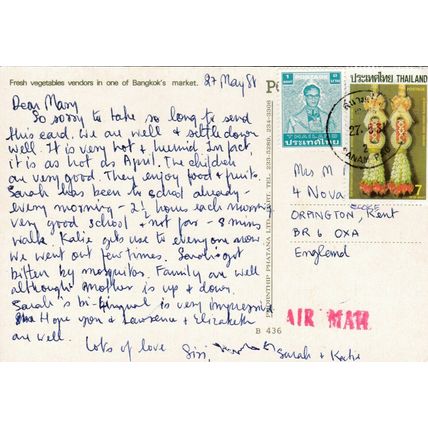 Fresh vegetables vendors in one of Bangkok's market.
27 May 81
Dear Mary
So sorry to take so long to send
this card. We are well & settle down
well. It is very hot & humid. In fact,
it is as hot as April. The children
are very good. They enjoy food & fruits.
Sarah has been to school already -
every morning - 2½ hours each morning
very good school + not far - 8 mins
walk. Katie gets use to everyone now.
We went out few times. Sarah got
bitten by mosquitos. Family are well
although mother is up & down.
Sarah's bi-lingual is very impressive
Hope you & Lawrence & Elizabeth
are well.
Lots of love
Sarah + Katie
B 436
PHORNTHIP PHATANA LTD.
233-5280, 234-3306
1 POSTAGE
THAILAND
ประเทศไทย
ประเทศไทย THAILAND
7
Mrs M
4 Nova
ORPINGTON, Kent
BR6 OXA
England
AIR MAIL